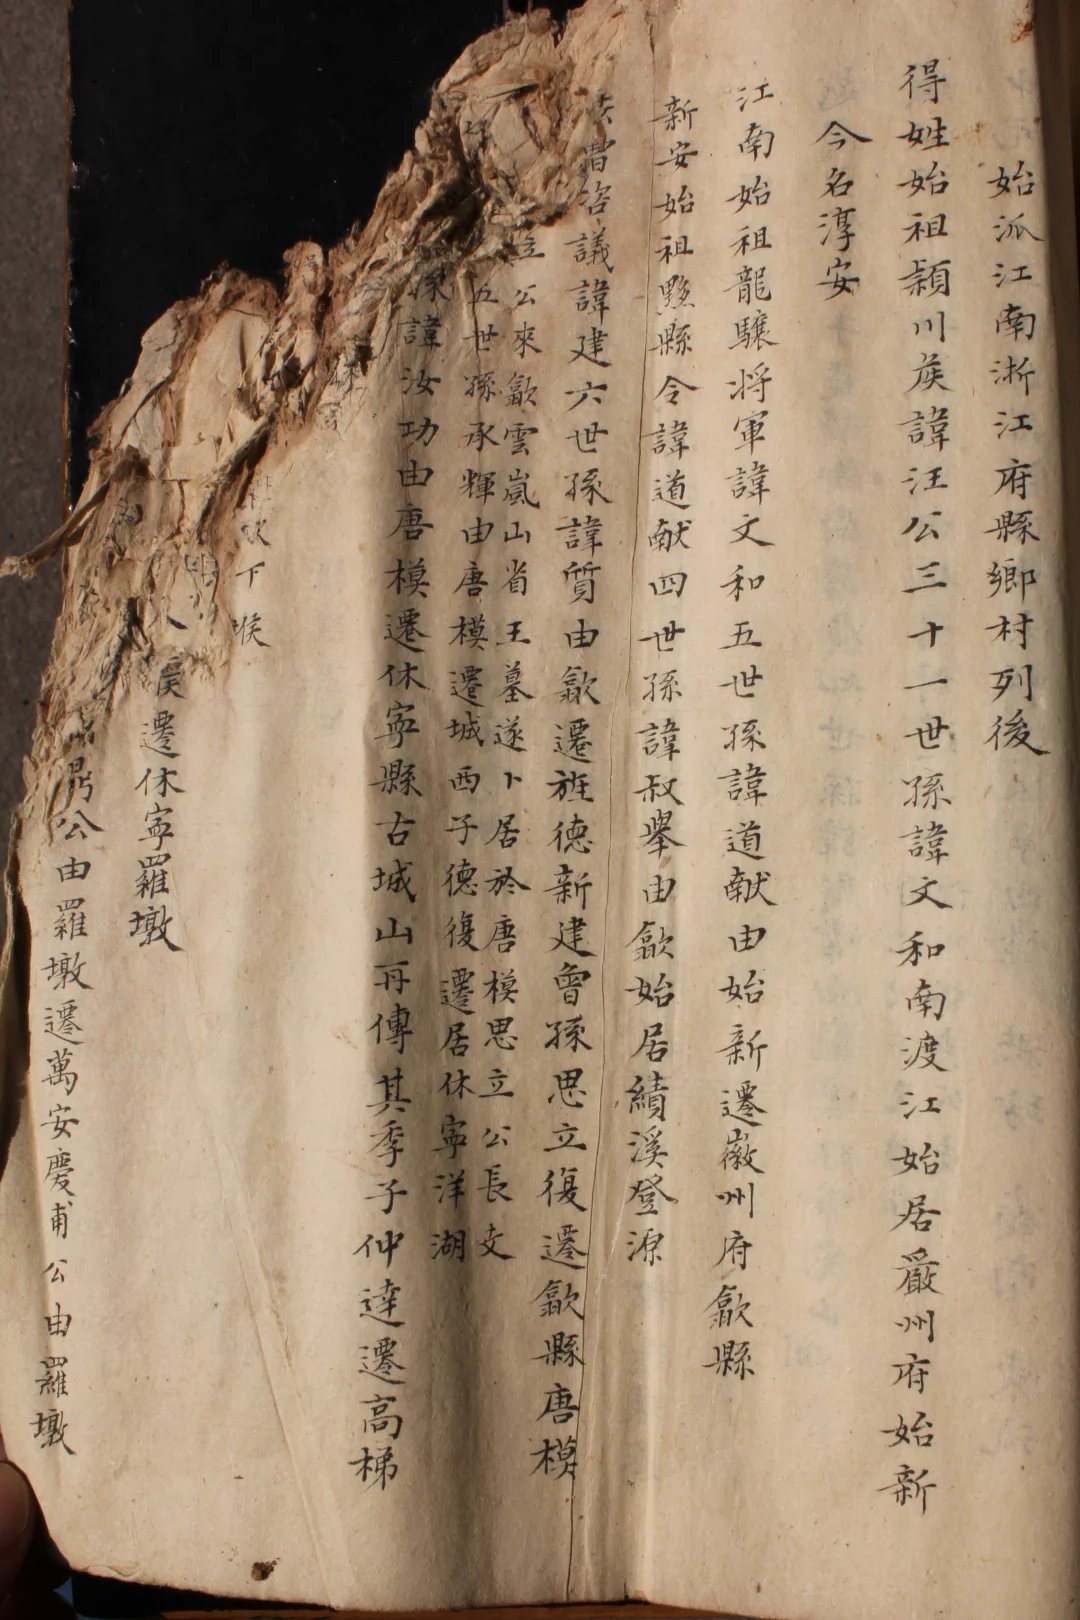 始派江南浙江府縣鄉村列後
得姓始祖潁川矦諱汪公三十一世孫諱文和南渡江始居嚴州府始新
今名淳安
江南始祖龍驤将軍諱文和五世孫諱道献由始新遷徽州府歙縣
新安始祖黟縣令諱道献四世孫諱叔舉由歙始居績溪登源
諮議諱建六世孫諱質由歙遷旌德新建曾孫思立復遷歙縣唐模
立公來歙雲嵐山省王墓遂卜居於唐模思立公長支
五世孫承輝由唐模遷城西子德復遷居休寧洋湖
孫諱汝功由唐模遷休寧縣古城山再傳其季子仲達遷高梯
下
遷休寧羅墩
公由羅墩遷萬安慶甫公由羅墩